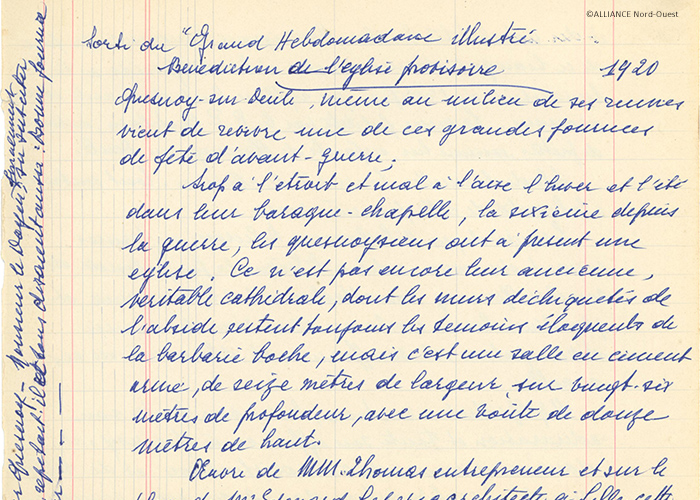 ©ALLIANCE Nord-Ouest
Sorti du "Grand Hebdomadaire illustré
Bénédiction de l'eglise provisoire 1920
Quesnoy-sur-Deûle, même au milieu de ses ruines
vient de revivre une de ces grandes journées
de fête d'avant-guerre.
Trop à l'étroit et mal à l'aise l'hiver et l'été
dans leur baraque-chapelle, la sixième depuis
la guerre, les quesnoysiens ont à présent une
eglise. Ce n'est pas encore leur ancienne,
veritable cathédrale, dont les murs déchiquetés de
l'abside restent toujours les temoins éloquents de
la barbarie boche, mais c'est une salle en ciment
armé, de seize mètres de largeur sur vingt-six
mètres de profondeur, avec une voûte de douze
mètres de haut.
Œuvre de MM. Thomas entrepreneur et sur le
architecte
Quesnoy - Monsieur le Doyen
repetait: il et tous disaient aussi: bonne journée